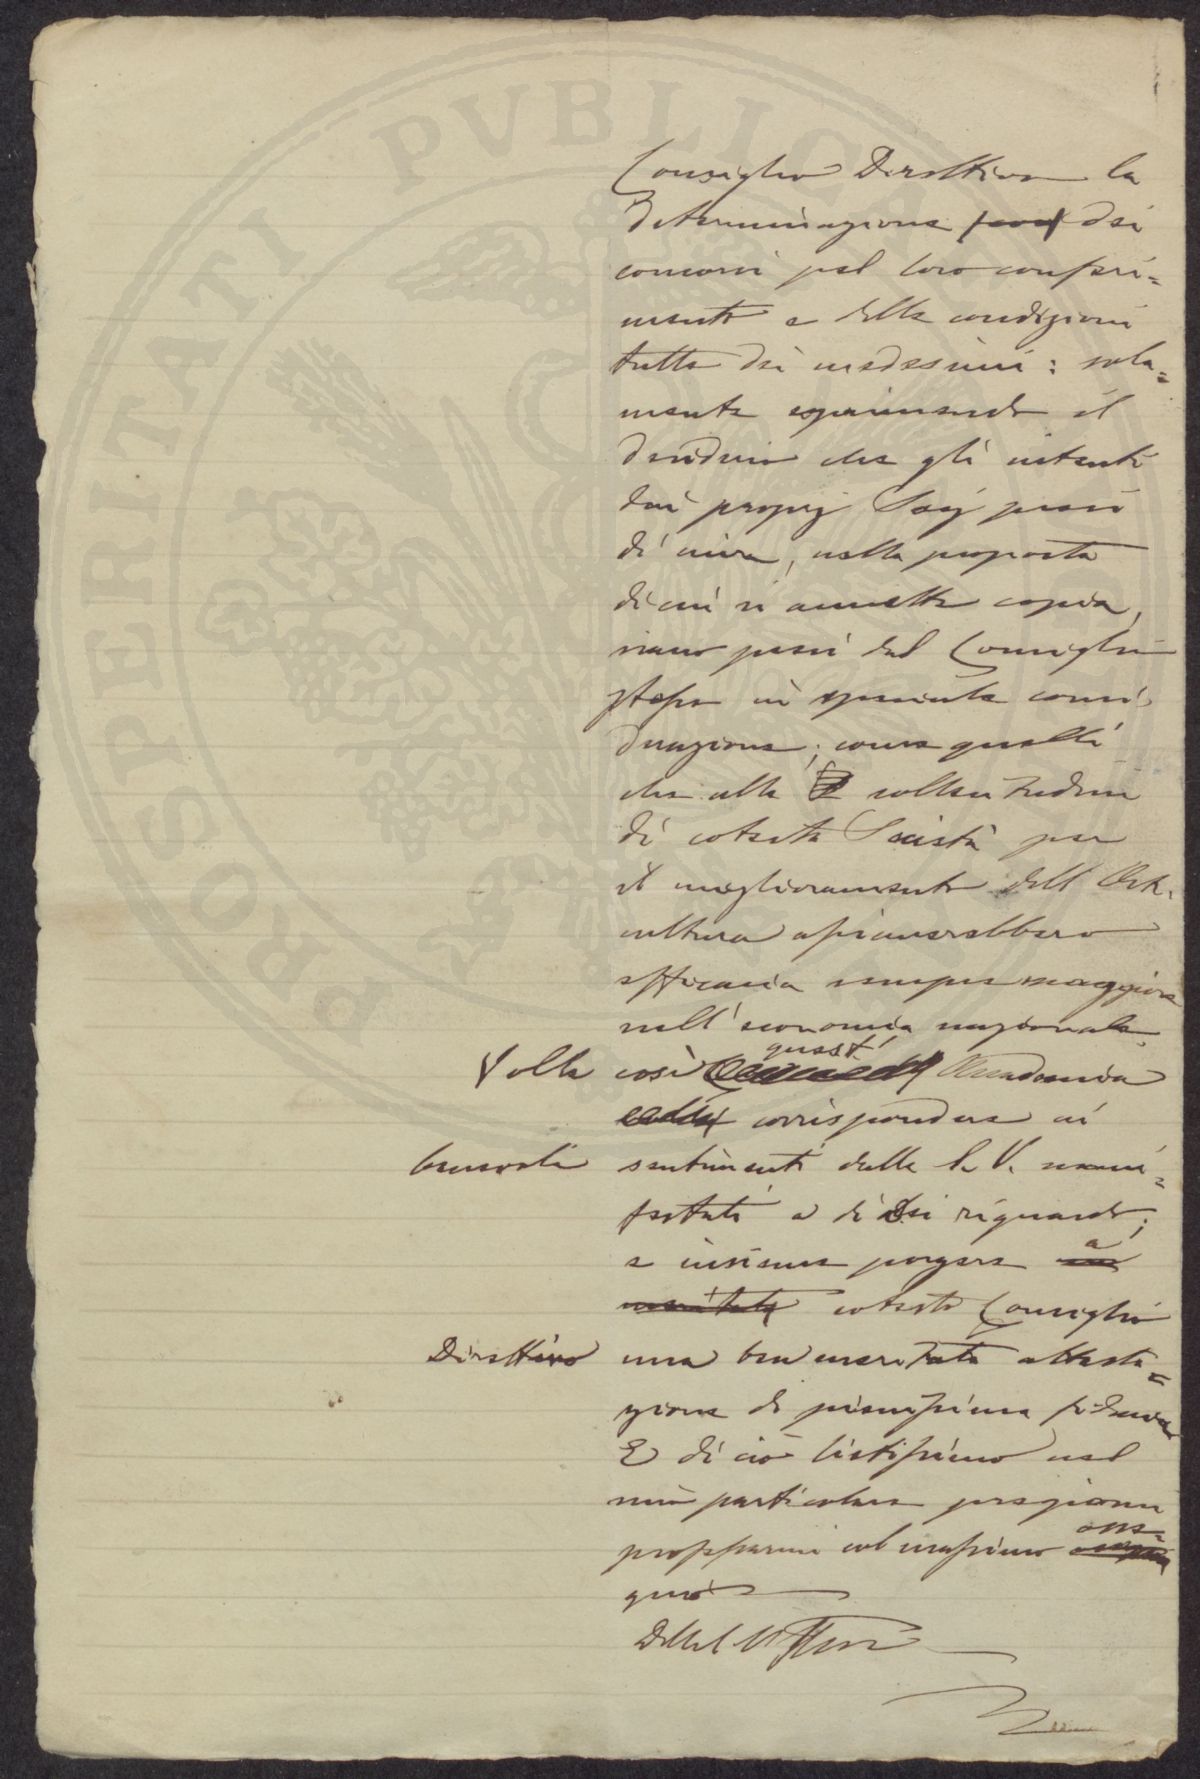 Consiglio Direttivo la
determinazione dei
concorsi pel loro conferi=
mento e delle condizioni
tutte dei medesimi: sola=
mente esprimendo il
desiderio che gli intenti
dai proprj Socj presi
di mira, nella proposta
di cui si annette copia,
siano presi dal Consiglio
stesso in speciale consi
derazione; come quelli
che alle sollecitudini
di cotesta Società per
il miglioramento dell'Orti
cultura assicurerebbero
efficacia sempre maggiore
nell'economia nazionale.
Volle così quest' Accademia
corrispondere ai
benevoli sentimenti della S. V. mani=
festati a di Lei riguardo;
e insieme porgere a
cotesto Consiglio
Direttivo una ben meritata attesta=
zione di pienissima fiducia
E di ciò lietissimo nel
mio particolare pregiomi
professarmi col massimo osse=
quio
Della S. V. Ill.ma
PROSPERITATI PVBLICAE